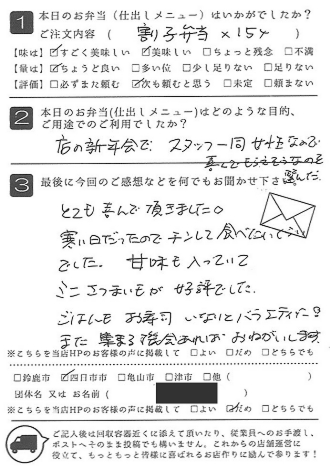 1 本日のお弁当（仕出しメニュー）はいかがでしたか？
ご注文内容 （ 割子弁当×15ケ ）
【味は】☑すごく美味しい ☑美味しい □ちょっと残念 □不満
【量は】☑ちょうど良い □多い位 □少し足りない □足りない
【評価】□必ずまた頼む ☑次も頼むと思う □未定 □頼まない
2 本日のお弁当(仕出しメニュー)はどのような目的、
ご用途でのご利用でしたか？
店の新年会で スタッフ一同 女性なので
喜んでもらえそうなのを
選んだ。
3 最後に今回のご感想などを何でもお聞かせ下さい。
とても喜んで頂きました。
寒い日だったので チンして 食べたいくらい
でした。 甘味も 入っていて
ミニ さつまいもが 好評でした。
ごはんも お寿司 いなりとバラエティーで
また 集まる機会あれば おねがいします。
※こちらを当店HPのお客様の声に掲載して □よい ☑だめ □どちらでも
□鈴鹿市 ☑四日市市 □亀山市 □津市 □他（ ）
団体名 又は お名前（ ）
※こちらを当店HPのお客様の声に掲載して □よい ☑だめ □どちらでも
ご記入後は回収容器近くに添えて頂いたり、従業員へのお手渡し、
ポストへそのまま投稿でも構いません。これからの店舗運営に
役立て、もっともっと皆様に喜ばれるお店作りに励んで参ります！